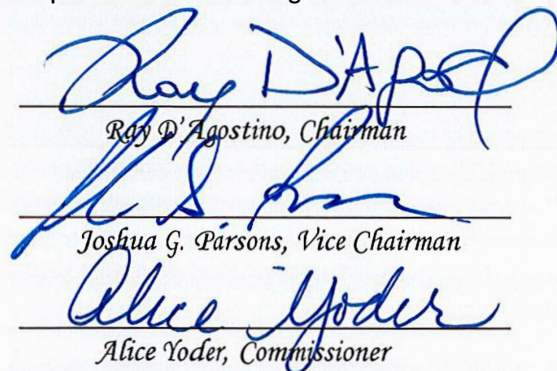 Ray D'Agost
Ray D'Agostino, Chairman
Joshua G. Parsons, Vice Chairman
Alice Yoder
Alice Yoder, Commissioner